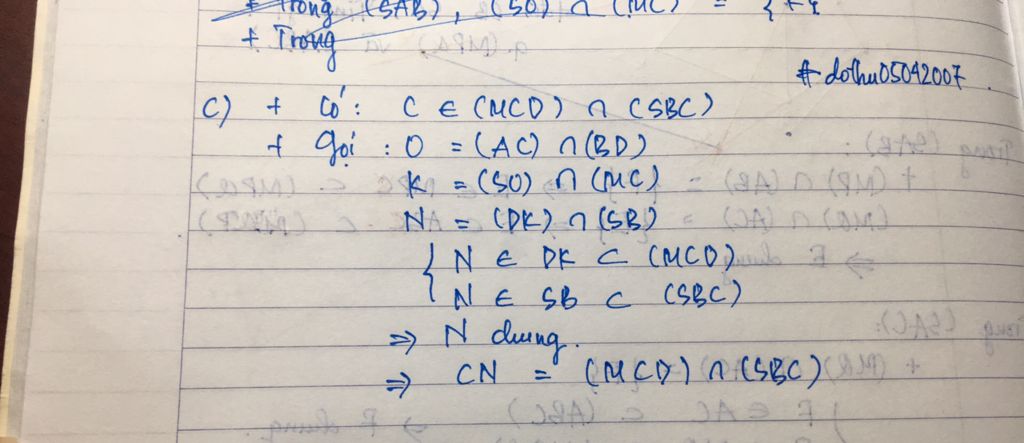 + Trong (SAB), (SO) ∩ (MC) =
+ Trong
# dothu05042007.
c) + Có: C ∈ (MCD) ∩ (SBC)
+ Gọi : O = (AC) ∩ (BD)
K = (SO) ∩ (MC)
N = (DK) ∩ (SB)
{ N ∈ DK ⊂ (MCD)
N ∈ SB ⊂ (SBC)
=> N chung.
=> CN = (MCD) ∩ (SBC)